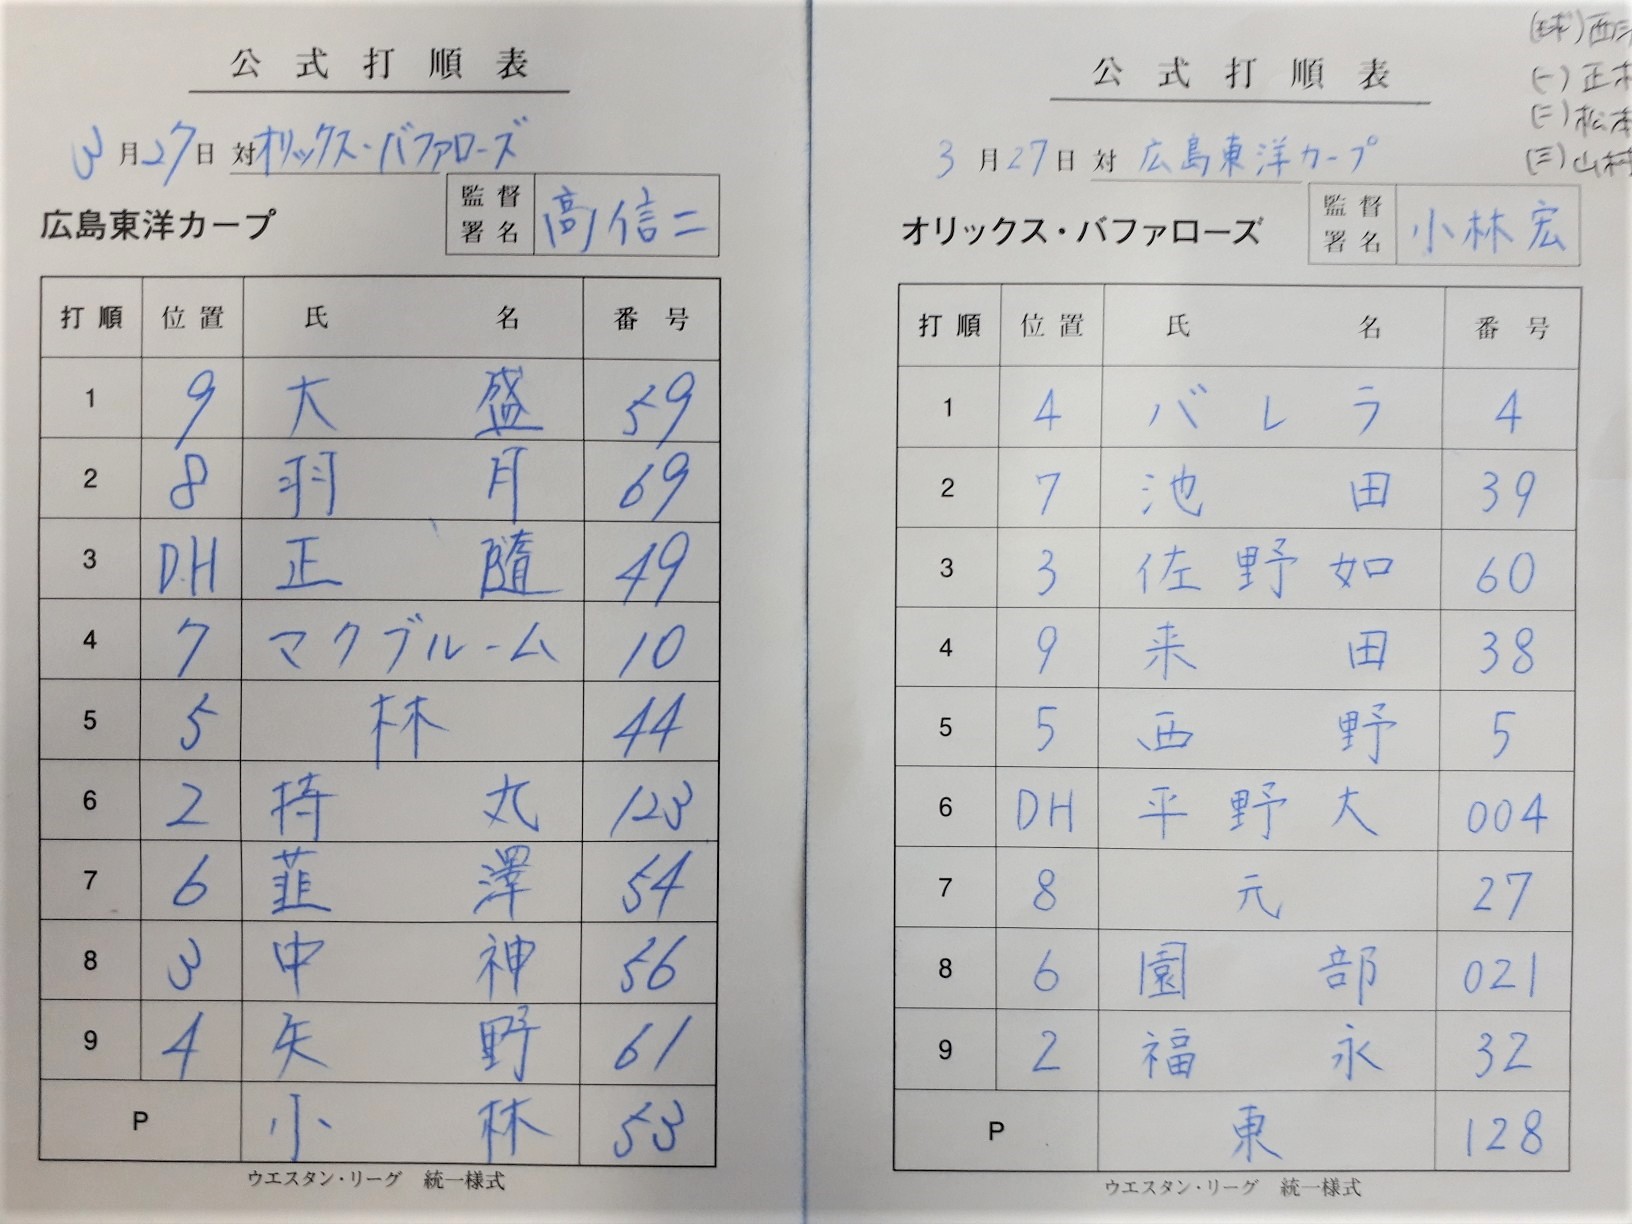 公式打順表
3月27日 対オリックス・バファローズ
広島東洋カープ
監督署名 高信二
打順 位置 氏名 番号
1 9 大盛 59
2 8 羽月 69
3 D.H 正隨 49
4 7 マクブルーム 10
5 5 林 44
6 2 持丸 123
7 6 韮澤 54
8 3 中神 56
9 4 矢野 61
P 小林 53
ウエスタン・リーグ 統一様式
公式打順表
3月27日 対 広島東洋カープ
オリックス・バファローズ
監督署名 小林宏
打順 位置 氏名 番号
1 4 バレラ 4
2 7 池田 39
3 3 佐野如 60
4 9 来田 38
5 5 西野 5
6 DH 平野大 004
7 8 元 27
8 6 園部 021
9 2 福永 32
P 東 128
ウエスタン・リーグ 統一様式
(球)西
(一)正木
(二)松本
(三)山村